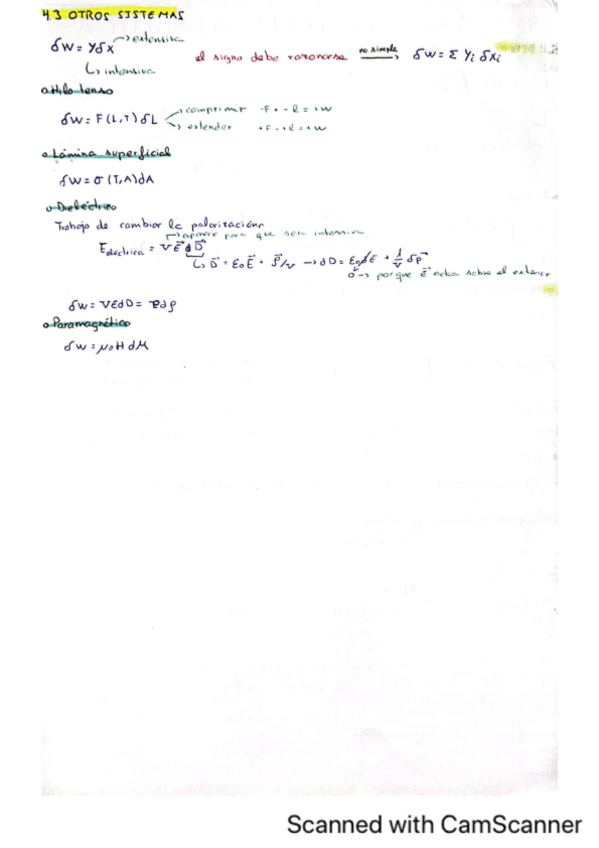 4.3 OTROS SISTEMAS
δW = Yδx → extensiva
↳ intensiva
el signo debe razonarse no simple → δW = Σ Yi δxi
o Hilo tenso
δW = F(L,T) δL
→ comprimir -F · -l = +W
→ extender +F · +l = +W
o Lámina superficial
δW = σ(T,A)dA
o Dieléctrico
Trabajo de cambiar la polarización
→ aparece para que sea intensiva
Eeléctrica = V E d D
↳ D = ε₀E + P/V → dD = ε₀dE + 1/V δp
0 → porque E actua sobre el exterior
δW = VEdD =
o Paramagnético
δW = μ₀HdM
Scanned with CamScanner